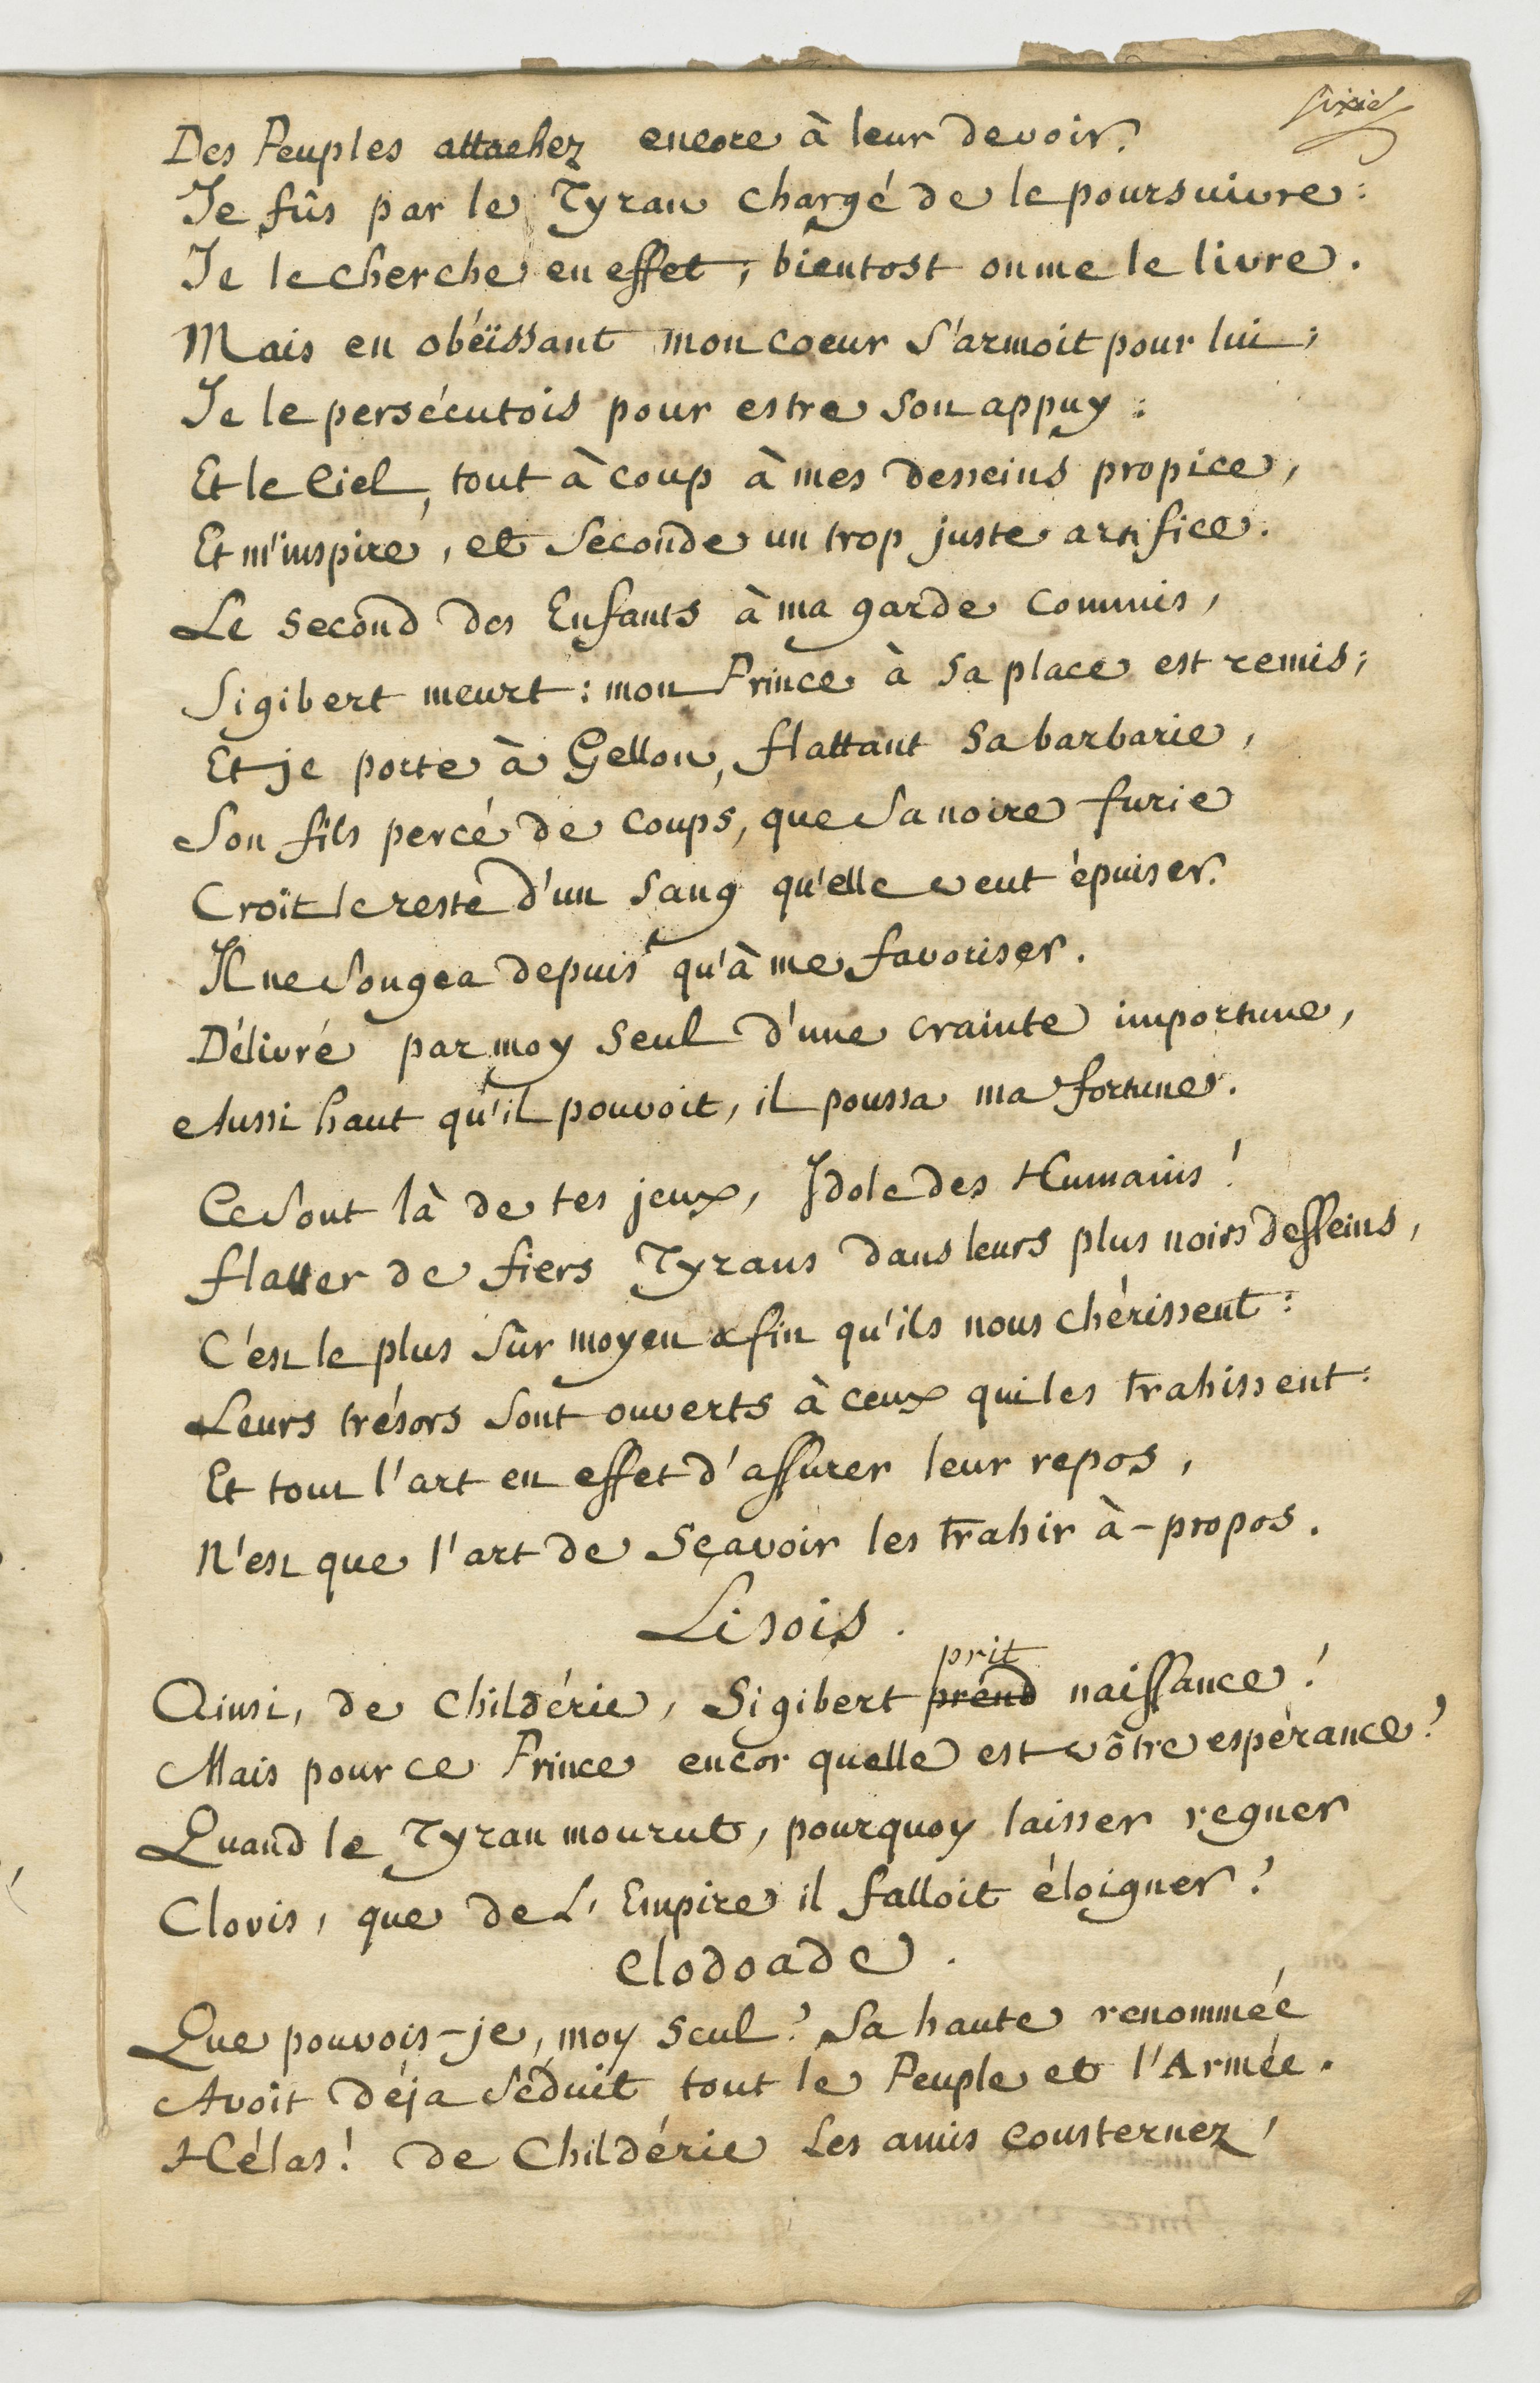 sixie
Des Peuples attachez encore à leur devoir.
Je fûs par le Tyran chargé de le poursuivre:
Je le cherche en effet; bientost on me le livre.
Mais en obéïssant mon coeur s'armoit pour lui;
Je le persécutois pour estre son appuy:
Et le Ciel, tout à coup à mes desseins propice,
Et m'inspire, et seconde un trop juste artifice.
Le second des Enfants à ma garde commis,
Sigibert meurt: mon Prince à sa place est remis;
Et je porte à Gellon, flattant sa barbarie,
Son fils percé de coups, que sa noire furie
Croit le reste d'un sang qu'elle veut épuiser.
Il ne songea depuis qu'à me favoriser.
Délivré par moy seul d'une crainte importune,
Aussi haut qu'il pouvoit, il poussa ma fortune.
Ce sont là de tes jeux, Idole des Humains!
flatter de fiers Tyrans dans leurs plus noirs desseins,
C'est le plus sûr moyen afin qu'ils nous chérissent:
Leurs trésors sont ouverts à ceux qui les trahissent:
Et tout l'art en effet d'assurer leur repos,
N'est que l'art de sçavoir les trahir à-propos.
Lisois.
prit
Ainsi, de Childéric, Sigibert prend naissance!
Mais pour ce Prince encor quelle est vôtre espérance?
Quand le Tyran mourut, pourquoy laisser regner
Clovis, que de L'Empire il falloit éloigner?
Clodoade.
Que pouvois-je, moy seul? Sa haute renommée
Avoit déja séduit tout le Peuple et l'Armée.
Hélas! de Childéric les amis consternez,